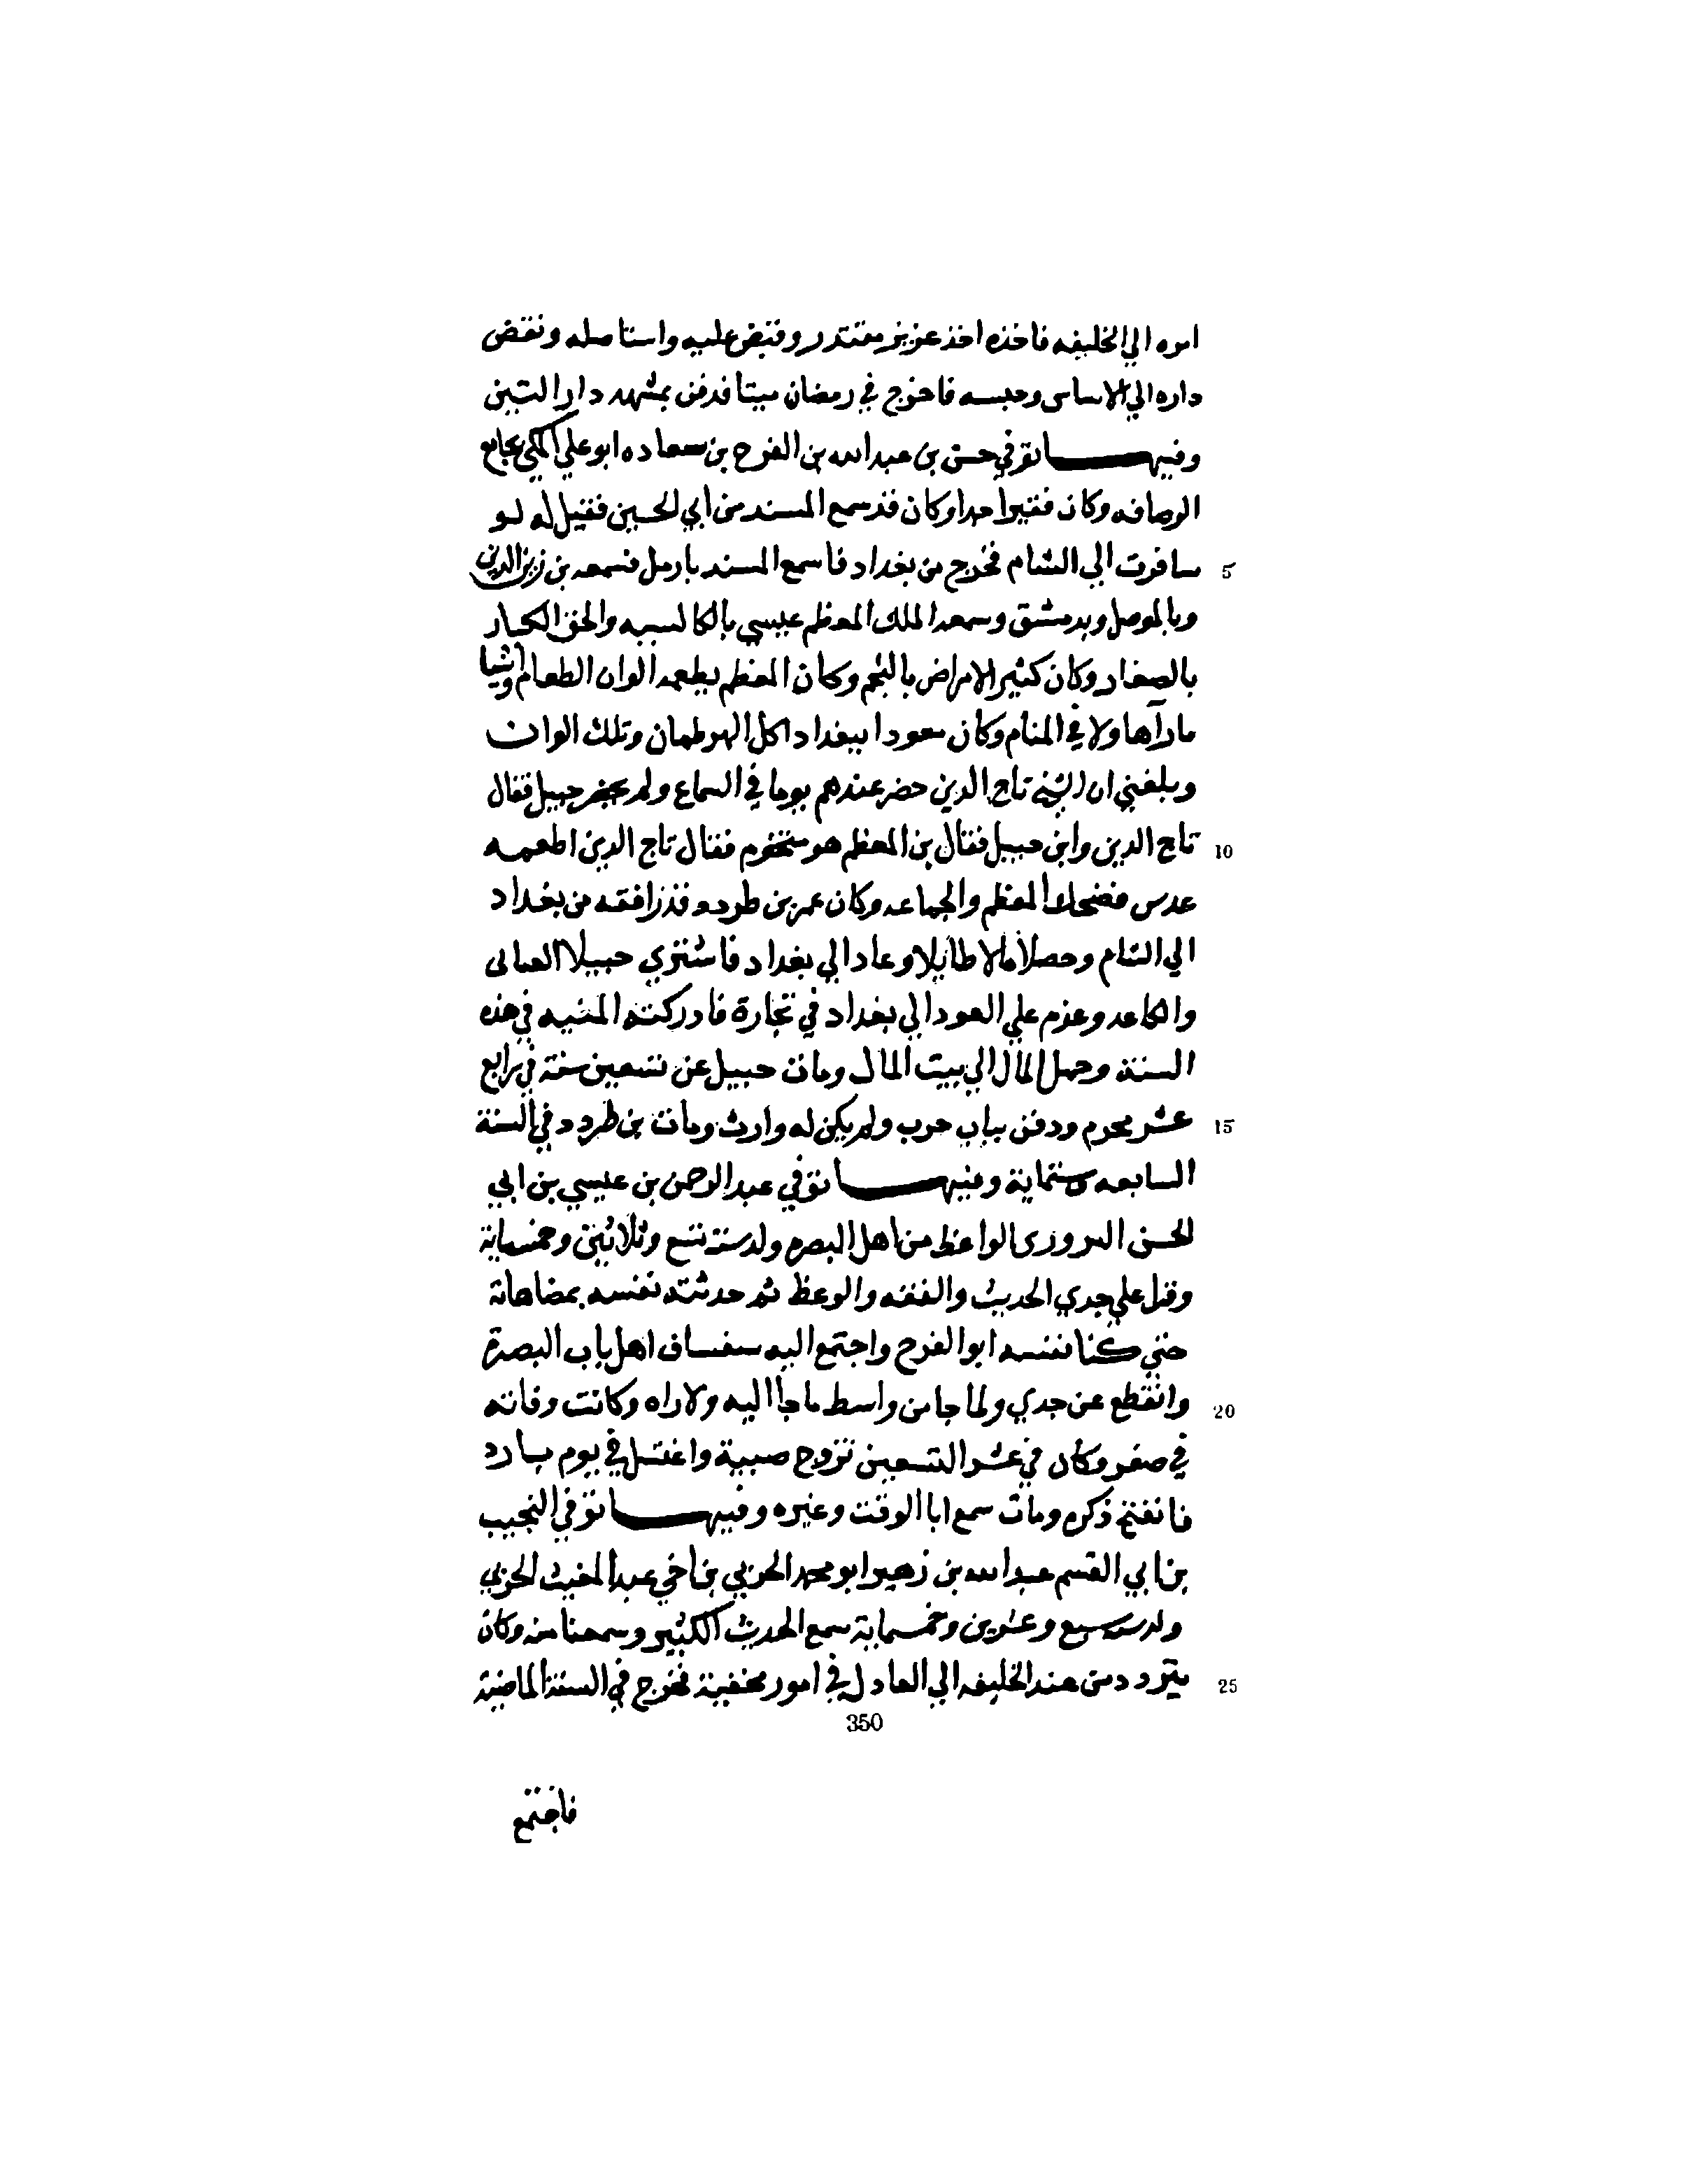 امره الي الخليفه فاخذه اخذ عزيز مقتدر وقبض عليه واستاصله ونقض
داره الي الاساس وحبسه فاخرج في رمضان ميتا فدفن بمشهد دار التبن
وفيها توفي حسن بن عبد الله بن الفرح بن سعاده ابو علي المكي بجامع
الرصافه وكان فقيرا جدا وكان قد سمع المسند من ابي الحسين فقيل له لو
5 سافرت الي الشام فخرج من بغداد فاسمع المسند باربل فسمعه بن زين الدين
وبالموصل وبدمشق وسمعه الملك المعظم عيسي بالكالسيه والحق الكبار
بالصغار وكان كثير الامراض بالتخم وكان المعظم يطعمه الوان الطعام اشيا
ما رآها ولا في المنام وكان معودا ببغداد اكل الهرطمان وتلك الوان
وبلغني ان الشيخ تاج الدين حضر عندهم يوما في السماع ولم يحضر حبيل فقال
10 تاج الدين واين حبيل فقال بن المعظم هو متخوم فقال تاج الدين اطعمه
عدس فضحك المعظم والجماعه وكان عمر بن طردد قد رافقه من بغداد
الي الشام وحصلا مالا طايلا وعادا الي بغداد فاشتري حبيلا
والكاعد وعزم علي العود الي بغداد في تجارة فادركته المنيه في هذه
السنة وحمل المال الي بيت المال ومات حبيل عن تسعين سنة في رابع
15 عشر محرم ودفن بباب حرب ولم يكن له وارث ومات بن طردد في السنة
السابعه وستماية وفيها توفي عبد الرحمن بن عيسي بن ابي
الحسن الواعظ من اهل البصره ولد سنة تسع وثلاثين وخمسماية
وقرا علي جدي الحديث والفقه والوعظ ثم حدثته نفسه بمضاهاته
حتي كنا نفسه ابوا الفرح واجتمع اليه سفساف اهل باب البصرة
20 وانقطع عن جدي ولما جا من واسط ما جا اليه ولا راه وكانت وفاته
في صفر وكان في عشر التسعين تزوج صبية واغتسل في يوم بارد
فانتفخ ذكره ومات سمع ابا الوقت وغيره وفيها توفي النجيب
بن ابي القسم عبد الله بن زهير ابو محمد الحربي بن اخي عبد المغيث الحربي
ولد سنة سبع وعشرين وخمسماية سمع الحديث الكثير وسمعنا منه وكان
25 يتردد من عند الخليفه الي العادل في امور مخفية فخرج في السنة الماضية
350
فاجتمع